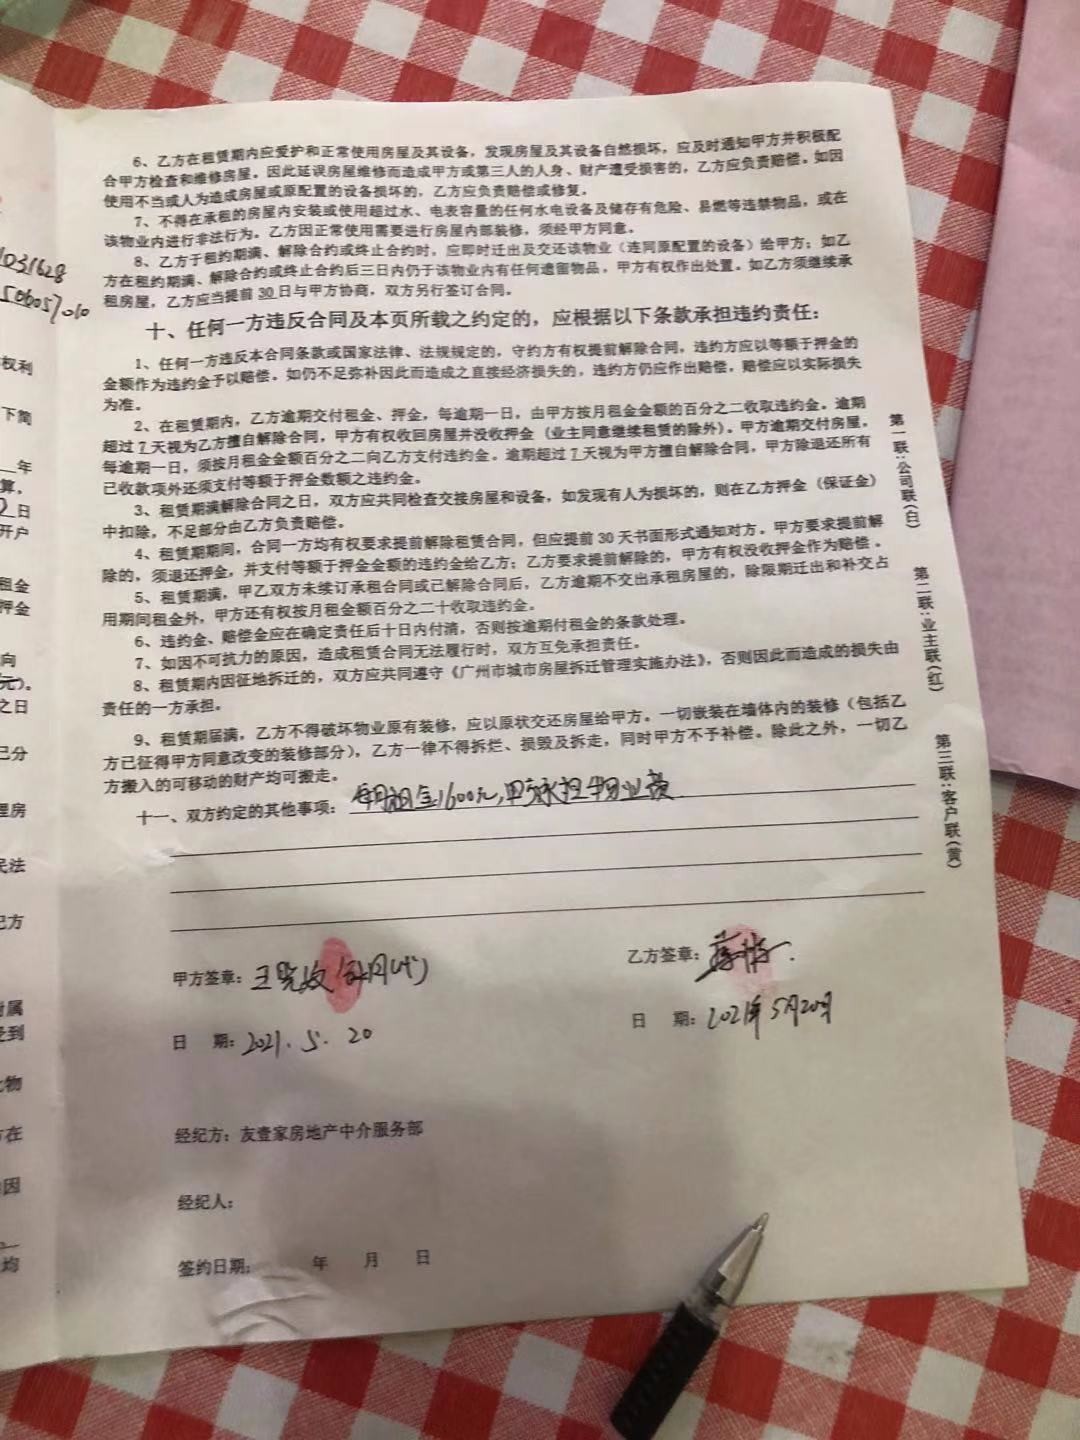 6、乙方在租赁期内应爱护和正常使用房屋及其设备，发现房屋及其设备自然损坏，应及时通知甲方并积极配
合甲方检查和维修房屋。因此延误房屋维修而造成甲方或第三人的人身、财产遭受损害的，乙方应负责赔偿。如因
使用不当或人为造成房屋或原配置的设备损坏的，乙方应负责赔偿或修复。
7、不得在承租的房屋内安装或使用超过水、电表容量的任何水电设备及储存有危险、易燃等违禁物品，或在
该物业内进行非法行为。乙方因正常使用需要进行房屋内部装修，须经甲方同意。
8、乙方于租约期满、解除合约或终止合约时，应即时迁出及交还该物业（连同原配置的设备）给甲方；如乙
方在租约期满、解除合约或终止合约后三日内仍于该物业内有任何遗留物品，甲方有权作出处置。如乙方须继续承
租房屋，乙方应当提前30日与甲方协商，双方另行签订合同。
十、任何一方违反合同及本页所载之约定的，应根据以下条款承担违约责任：
1、任何一方违反本合同条款或国家法律、法规规定的，守约方有权提前解除合同，违约方应以等额于押金的
金额作为违约金予以赔偿。如仍不足弥补因此而造成之直接经济损失的，违约方仍应作出赔偿，赔偿应以实际损失
为准。
2、在租赁期内，乙方逾期交付租金、押金，每逾期一日，由甲方按月租金金额的百分之二收取违约金。逾期
超过7天视为乙方擅自解除合同，甲方有权收回房屋并没收押金（业主同意继续租赁的除外）。甲方逾期交付房屋，
每逾期一日，须按月租金金额百分之二向乙方支付违约金。逾期超过7天视为甲方擅自解除合同，甲方除退还所有
已收款项外还须支付等额于押金数额之违约金。
3、租赁期满解除合同之日，双方应共同检查交接房屋和设备，如发现有人为损坏的，则在乙方押金（保证金）
中扣除，不足部分由乙方负责赔偿。
4、租赁期期间，合同一方均有权要求提前解除租赁合同，但应提前30天书面形式通知对方。甲方要求提前解
除的，须退还押金，并支付等额于押金金额的违约金给乙方；乙方要求提前解除的，甲方有权没收押金作为赔偿。
5、租赁期满，甲乙双方未续订承租合同或已解除合同后，乙方逾期不交出承租房屋的，除限期迁出和补交占
用期间租金外，甲方还有权按月租金额百分之二十收取违约金。
6、违约金、赔偿金应在确定责任后十日内付清，否则按逾期付租金的条款处理。
7、如因不可抗力的原因，造成租赁合同无法履行时，双方互免承担责任。
8、租赁期内因征地拆迁的，双方应共同遵守《广州市城市房屋拆迁管理实施办法》，否则因此而造成的损失由
责任的一方承担。
9、租赁期届满，乙方不得破坏物业原有装修，应以原状交还房屋给甲方。一切嵌装在墙体内的装修（包括乙
方已征得甲方同意改变的装修部分），乙方一律不得拆烂、损毁及拆走，同时甲方不予补偿。除此之外，一切乙
方搬入的可移动的财产均可搬走。
十一、双方约定的其他事项：每月租金1600元，甲方承担物业费
甲方签章：王晓
日 期：2021.5.20
乙方签章：
日 期：2021年5月20日
经纪方：友壹家房地产中介服务部
经纪人：
签约日期： 年 月 日
第一联：公司联（白）
第二联：业主联（红）
第三联：客户联（黄）
1031628
506057010
权利
下简
年
算，
日
开户
租金
押金
向
元）。
之日
已分
理房
民法
纪方
附属
受到
物
在
因
均